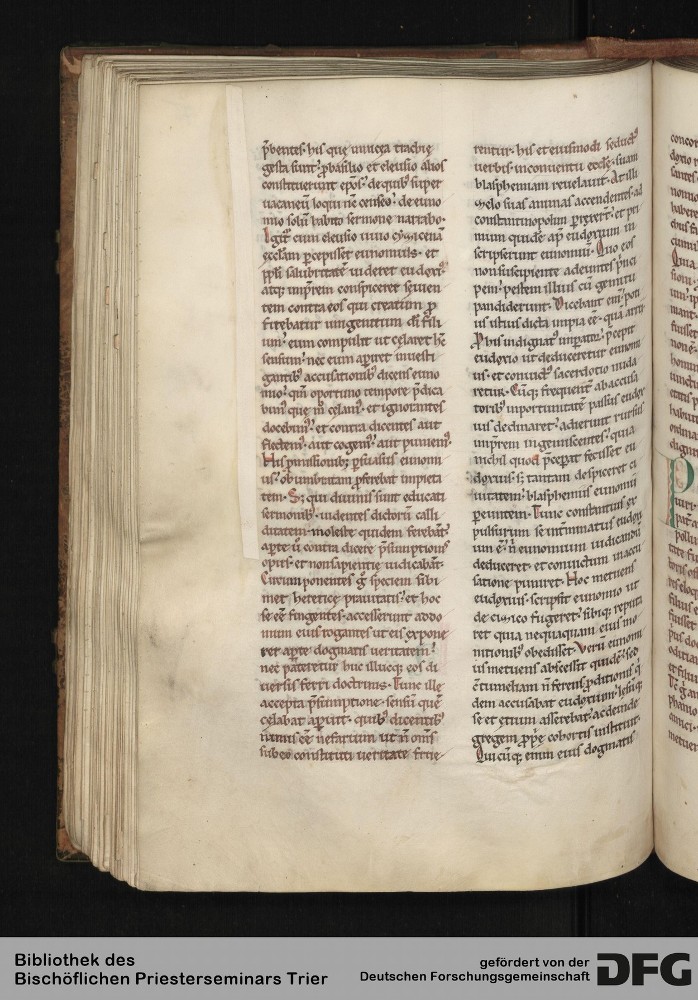 p̄bentes. his que iniuria trachię
gesta sunt. ꝓ basilio et eleusio alios
constituerunt ep̄os. de quib; sup̄er
uacaneū loqui nē censeo. de euno
mio solū habito sermone narrabo.
Igit̄ cum eleusio uiuo cyzicenā
eccłam ꝑcepisset eunomius. et
ppl̄i salubritatē uideret eudoxi᷒
atq; imꝑem conspiceret seuien
tem contra eos qui creatum ꝓ
fitebant̄ unigenitum dī fili
um. eum compulit ut cęlaret hc̄
sensum. nec eum aꝑiret inuesti
gantib᷒ accusationib᷒ dicens euno
mio. qm̄ oportuno tempore p̄dica
bim᷒ que nc̄ cęlam᷒. et ignorantes
docebim᷒. et contra dicentes aut
flectem᷒. aut cogem᷒. aut puniem᷒.
His ꝓmissionib; ꝑsuasus eunomi
us. obumbratam ꝓferebat impieta
tem. S; qui diuinis sunt educati
sermonib᷒. uidentes dictorū calli
ditatem. moleste quidem ferebāt.
aꝑte ū contra dicere p̄sumptionis
opus. et non sapientię iudicabāt.
Circumponentes ḡ speciem sibi
met hereticę prauitatis. et hoc
se eē fingentes. accesserunt ad do
mum eius rogantes ut eis expone
ret aꝑte dogmatis ueritatem.
nec pateretur huc illucq; eos di
uersis ferri doctrinis. Tunc ille
accepta p̄sumptione. sensū quē
cęlabat aꝑuit. quib᷒ dicentib᷒
nimis eē nefarium ut n̄ om̄s
sub eo constituti ueritate frue
rentur. his et eiusmodi seduct᷒
uerbis. in conuentu ecclę. suam
blasphemiam reuelauit. At illi
zelo suas animas accendentes. ad
constantinopolim ꝑrexert̄. et pri
mum quidē ap̄ eudoxium in
scripserunt eunomiū. Quo eos
non suscipiente adeuntes p̄nci
pem. pestem illius cū gemitu
pandiderunt. Dicebant eni᷒ poti
us istius dicta impia eē. qua arrii.
Ꝓ his indignat᷒ imꝑator. p̄cepit
eudoxio ut deduceretur eunomi
us. et conuict᷒ sacerdotio nuda
retur. Cūq; frequent̄ ab accusa
torib᷒ importunitatē passus eudoxi
us declinaret. adierunt rursus
imꝑem ingemiscentes. quia
nichil quod p̄ceꝑat fecisset eu
doxius. s; tantam despiceret ci
uitatem. blasphemiis eunomii
ꝑeuntem. Tunc constantius ex
pulsurum se int̄minatus eudoxi
um ē. n̄ eunomium iudicandū
deduceret. et conuictum in accu
satione puniret. Hoc metuens
eudoxius. scripsit eunomio ut
de cizico fugeret. sibiq; reputa
ret quia nequaquam eius mo
nitionib᷒ obedisset. Verū eunomi
us metuens abscessit quidē. sed
ɔtumeliam n̄ ferens ꝓditionis q̄
dem accusabat eudoxium. lesūq;
se et ętium asserebat. ac deinde
gregem ꝓprię cohortis instituit.
Quicūq; enim eius dogmatis
Bibliothek des
Bischöflichen Priesterseminars Trier
gefördert von der
Deutschen Forschungsgemeinschaft DFG